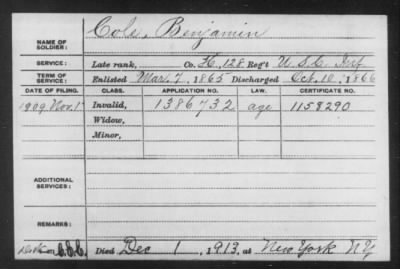 NAME OF SOLDIER: Cole, Benjamin
SERVICE: Late rank, Co. H, 128 Reg't U.S.C. Inf
TERM OF SERVICE: Enlisted Mar. 7, 1865 Discharged Oct. 10, 1866
DATE OF FILING. CLASS. APPLICATION NO. LAW. CERTIFICATE NO.
1909 Nov. 1 Invalid, 1386732 age 1158290
Widow,
Minor,
ADDITIONAL SERVICES:
REMARKS:
Died Dec 1, 1913, at New York NY